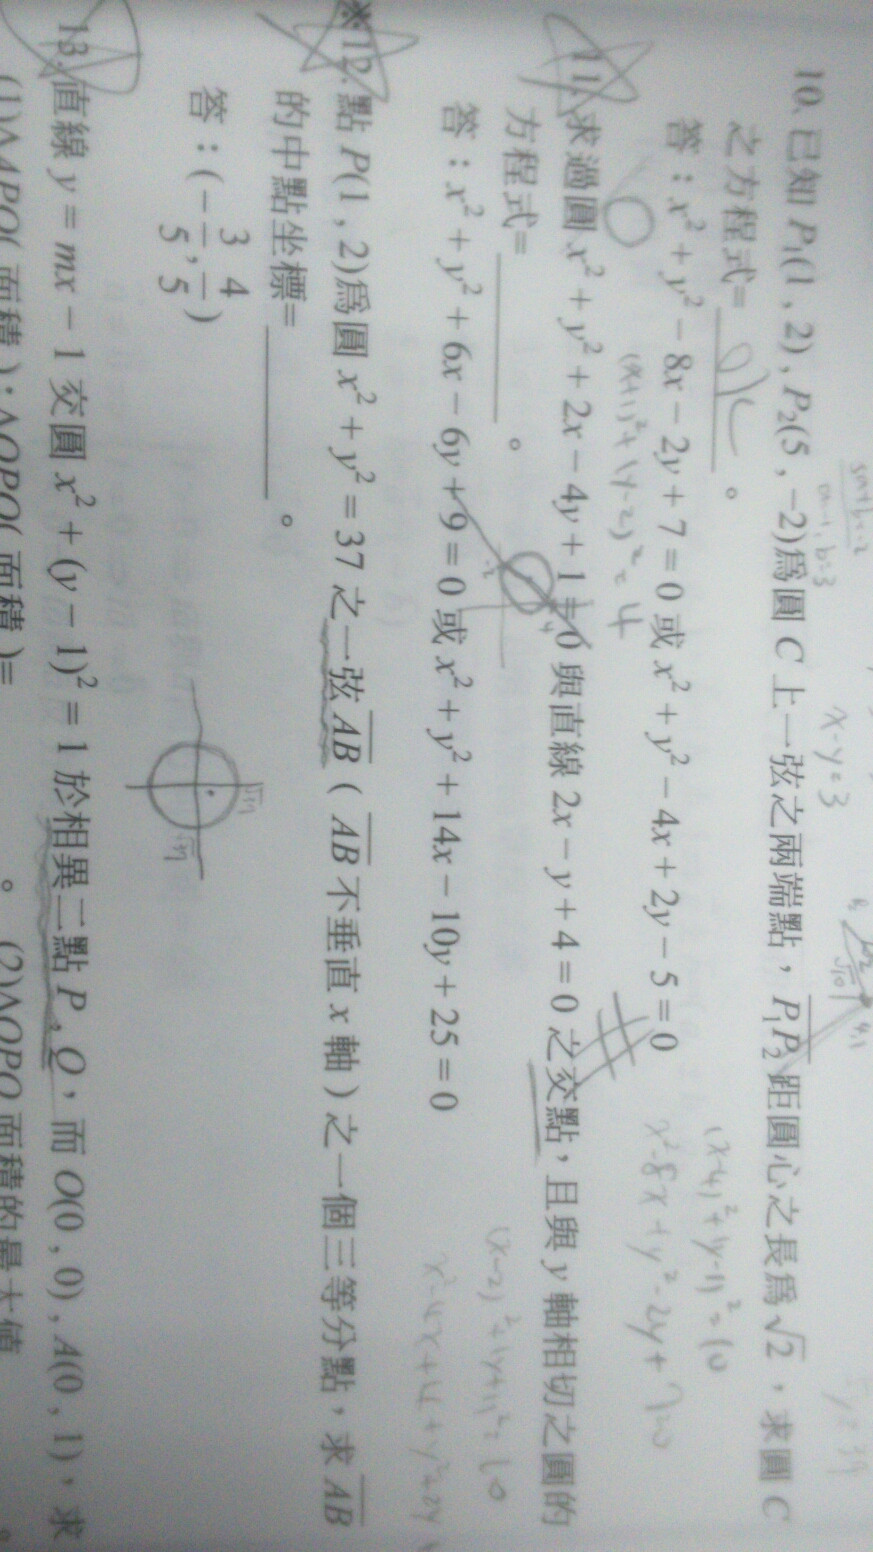 10. 已知 P₁(1 , 2) , P₂(5 , −2)為圓 C 上一弦之兩端點，P₁P₂ 距圓心之長為 √2，求圓 C
之方程式= ________ 。
答：x² + y² − 8x − 2y + 7 = 0 或 x² + y² − 4x + 2y − 5 = 0
(x-4)² + (y-1)² = 10
x² - 8x + y² - 2y + 7 = 0
x - y = 3
(x+1)² + (y-2)² = 4
11. 求過圓 x² + y² + 2x − 4y + 1 = 0 與直線 2x − y + 4 = 0 之交點，且與 y 軸相切之圓的
方程式= ________ 。
(x-2)² + (y+1)² = 10
答：x² + y² + 6x − 6y + 9 = 0 或 x² + y² + 14x − 10y + 25 = 0
※12. 點 P(1 , 2)為圓 x² + y² = 37 之一弦 AB ( AB 不垂直 x 軸 ) 之一個三等分點，求 AB
的中點坐標= ________ 。
答：(−3/5 , 4/5)
13. 直線 y = mx − 1 交圓 x² + (y − 1)² = 1 於相異二點 P , Q，而 O(0 , 0) , A(0 , 1)，求
(1)ΔAPQ( 面積 ) : ΔOPQ( 面積 )= 。 (2)ΔOPQ 面積的最大值 。